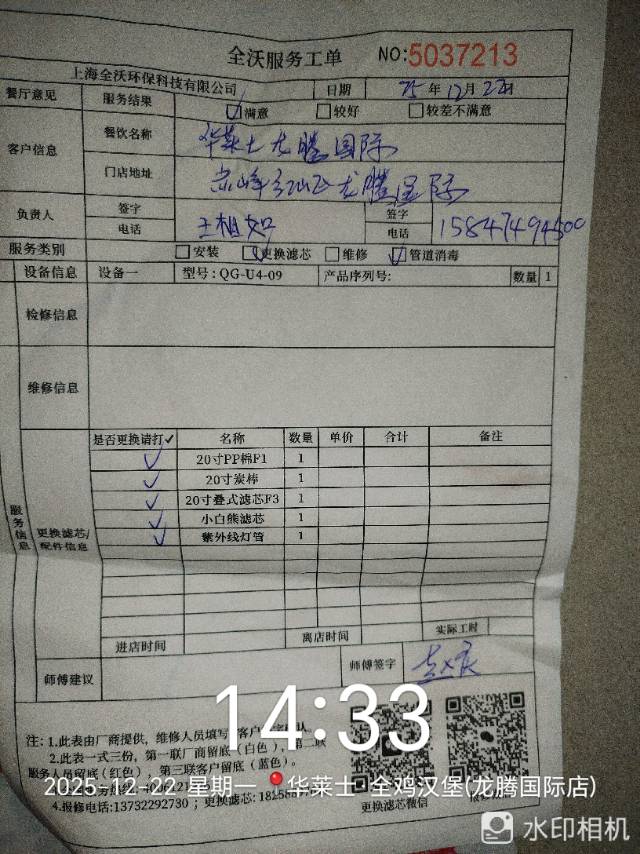 全沃服务工单 NO:5037213
上海全沃环保科技有限公司 日期 25年12月22日
餐厅意见 服务结果 ☑满意 ☐较好 ☐较差不满意
客户信息 餐饮名称 华莱士龙腾国际
门店地址 赤峰 龙腾国际
负责人 签字 王相如 签字
电话 电话 15847494500
服务类别 ☐安装 ☑更换滤芯 ☐维修 ☑管道消毒
设备信息 设备一 型号:QG-U4-09 产品序列号: 数量 1
检修信息
维修信息
服务信息
更换滤芯/配件信息
是否更换请打✓ 名称 数量 单价 合计 备注
✓ 20寸PP棉F1 1
✓ 20寸炭棒 1
✓ 20寸叠式滤芯F3 1
✓ 小白熊滤芯 1
✓ 紫外线灯管 1
进店时间 离店时间 实际工时
师傅建议 师傅签字
14:33
注:1.此表由厂商提供，维修人员填写
2.此表一式三份，第一联厂商留底（白色），第二联
服务人员留底（红色），第三联客户留底（蓝色）。
2025-12-22 星期一 华莱士·全鸡汉堡(龙腾国际店)
4.报修电话:13732292730；更换滤芯:
更换滤芯微信
水印相机